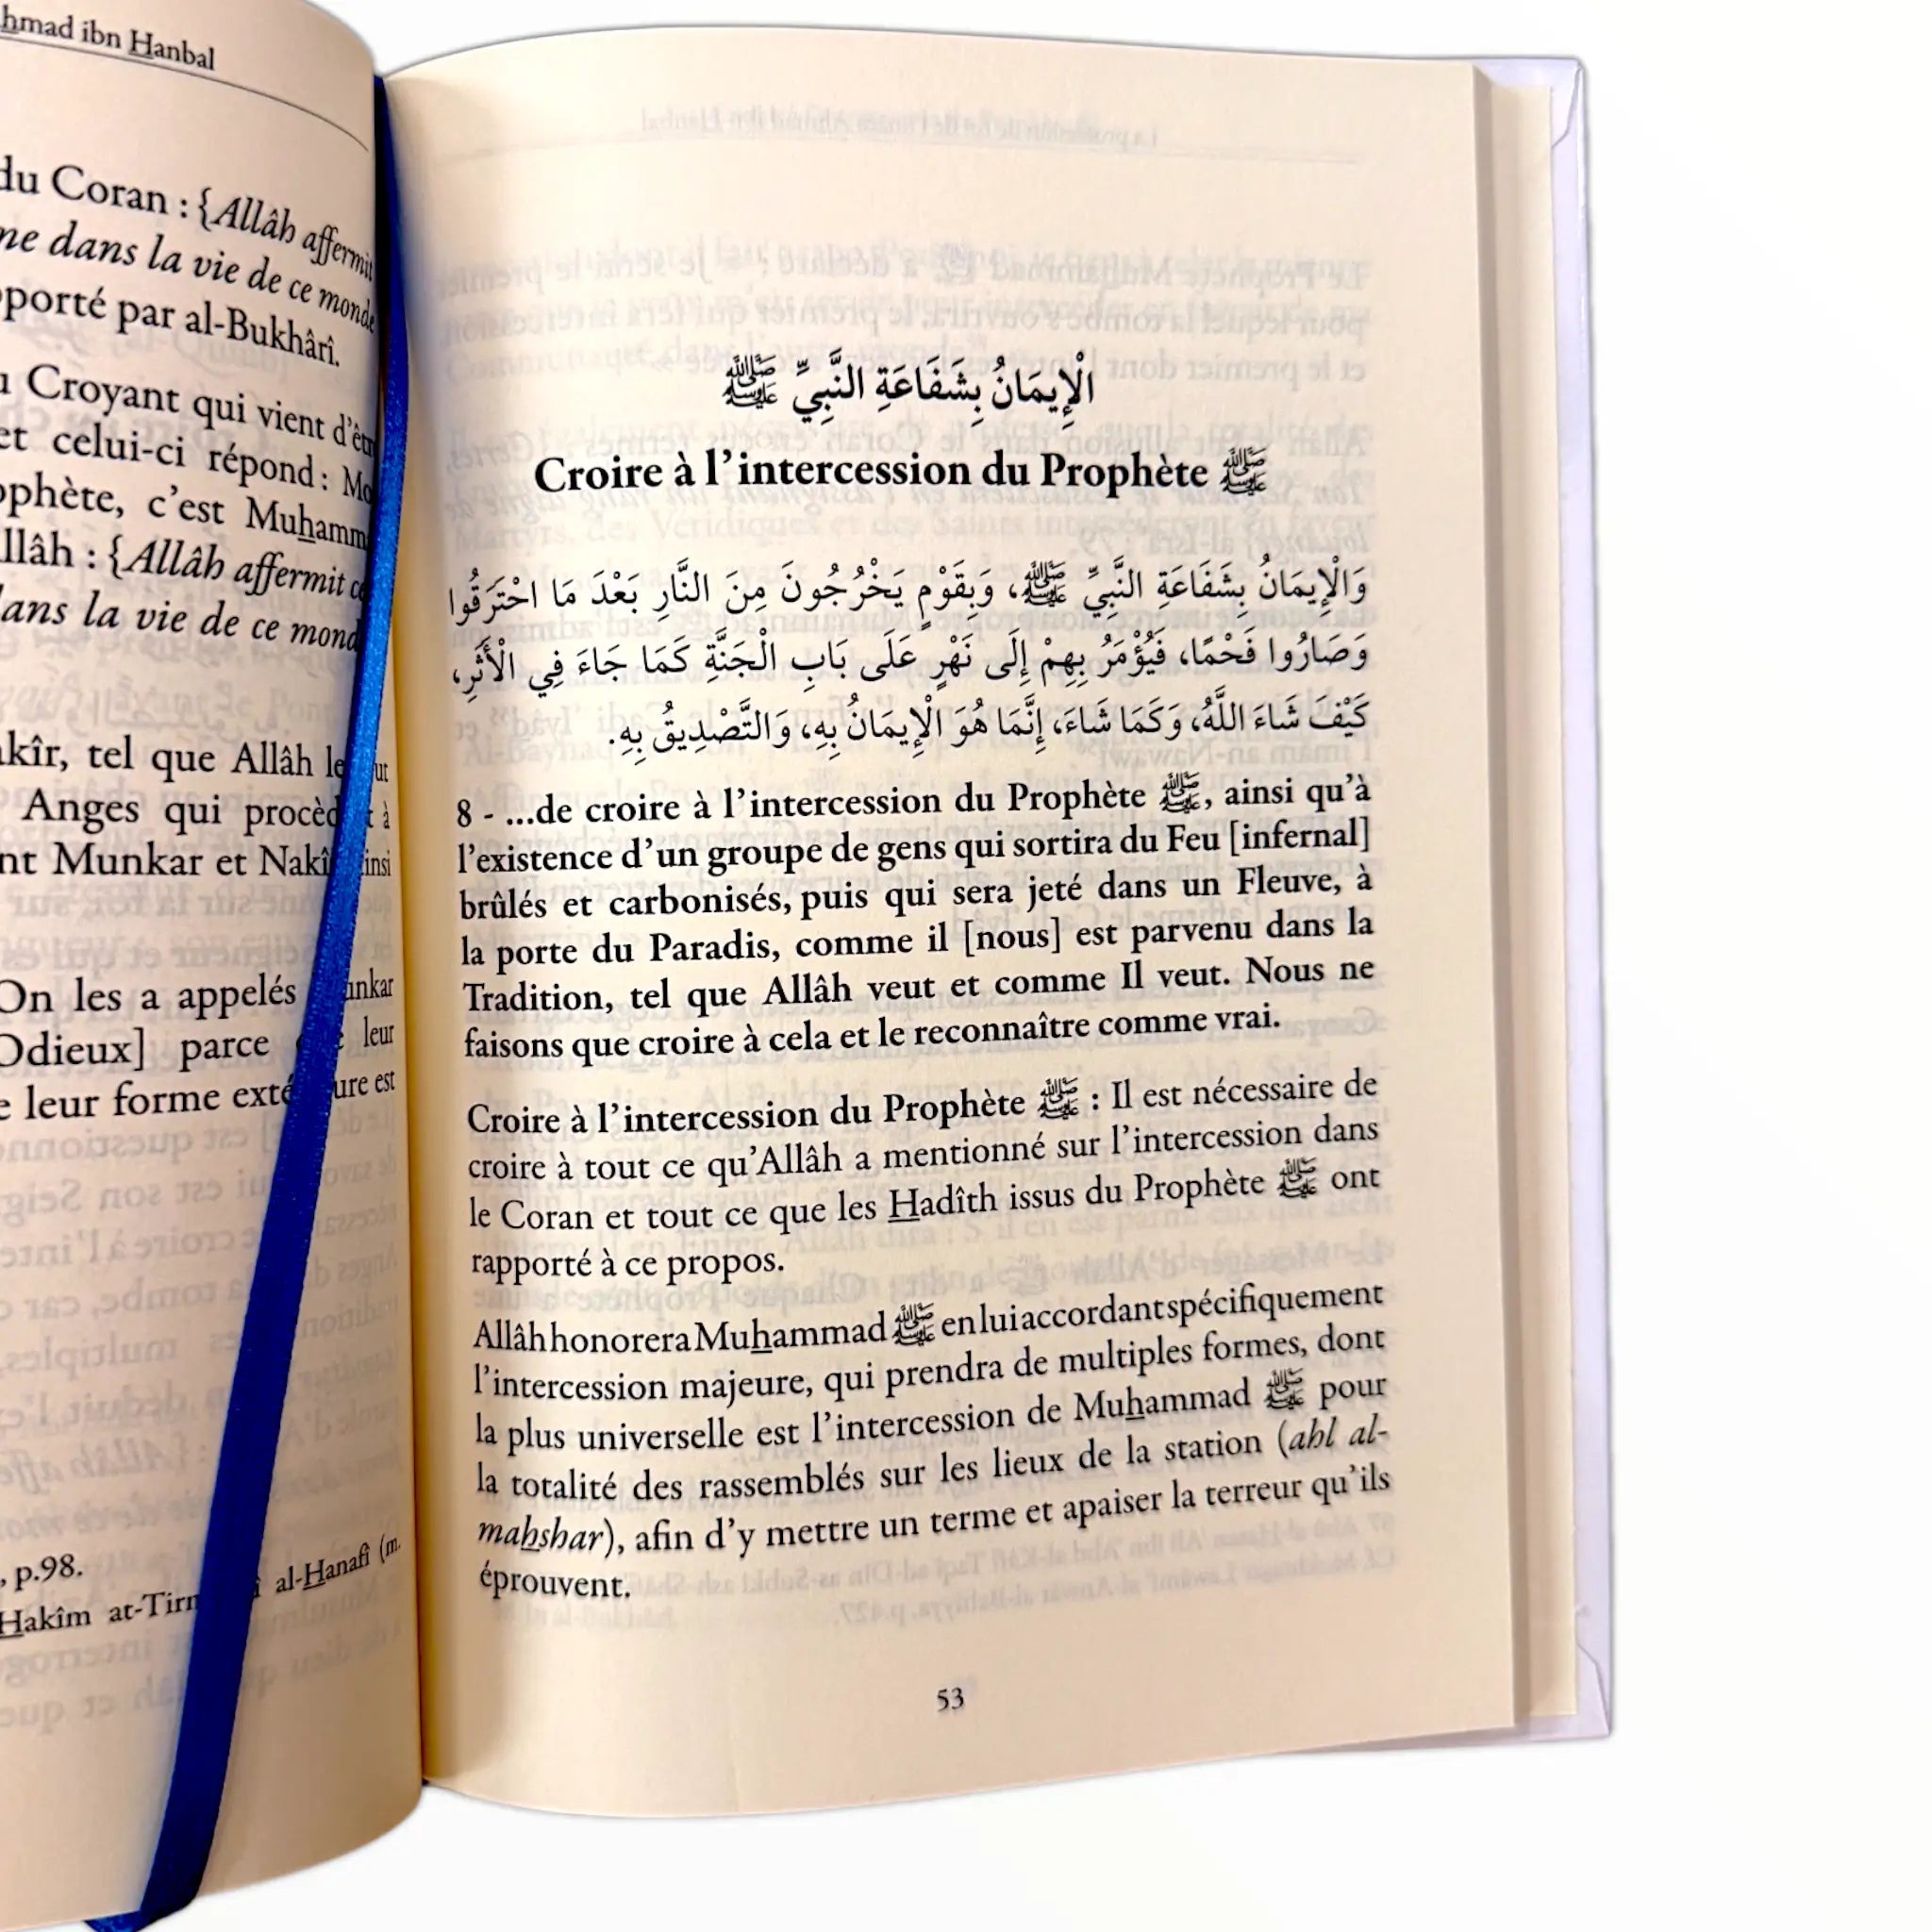 hmad ibn Hanbal
du Coran : {Allâh affermit
me dans la vie de ce monde
pporté par al-Bukhârî.
Croyant qui vient d'êtr
et celui-ci répond : Mo
ophète, c'est Muhamm
llâh : {Allâh affermit ce
dans la vie de ce mond
akîr, tel que Allâh le
Anges qui procèd
nt Munkar et Nakî
On les a appelés
Odieux] parce leur
e leur forme exté ure est
, p.98.
Hakîm at-Tirm î al-Hanafî (m.
الْإِيمَانُ بِشَفَاعَةِ النَّبِيِّ ﷺ
Croire à l'intercession du Prophète ﷺ
وَالْإِيمَانُ بِشَفَاعَةِ النَّبِيِّ ﷺ، وَبِقَوْمٍ يَخْرُجُونَ مِنَ النَّارِ بَعْدَ مَا احْتَرَقُوا
وَصَارُوا فَحْمًا، فَيُؤْمَرُ بِهِمْ إِلَى نَهْرٍ عَلَى بَابِ الْجَنَّةِ كَمَا جَاءَ فِي الْأَثَرِ،
كَيْفَ شَاءَ اللَّهُ، وَكَمَا شَاءَ، إِنَّمَا هُوَ الْإِيمَانُ بِهِ، وَالتَّصْدِيقُ بِهِ.
8 - ...de croire à l'intercession du Prophète ﷺ, ainsi qu'à
l'existence d'un groupe de gens qui sortira du Feu [infernal]
brûlés et carbonisés, puis qui sera jeté dans un Fleuve, à
la porte du Paradis, comme il [nous] est parvenu dans la
Tradition, tel que Allâh veut et comme Il veut. Nous ne
faisons que croire à cela et le reconnaître comme vrai.
Croire à l'intercession du Prophète ﷺ : Il est nécessaire de
croire à tout ce qu'Allâh a mentionné sur l'intercession dans
le Coran et tout ce que les Hadîth issus du Prophète ﷺ ont
rapporté à ce propos.
Allâh honorera Muhammad ﷺ en lui accordant spécifiquement
l'intercession majeure, qui prendra de multiples formes, dont
la plus universelle est l'intercession de Muhammad ﷺ pour
la totalité des rassemblés sur les lieux de la station (ahl al-
mahshar), afin d'y mettre un terme et apaiser la terreur qu'ils
éprouvent.
53